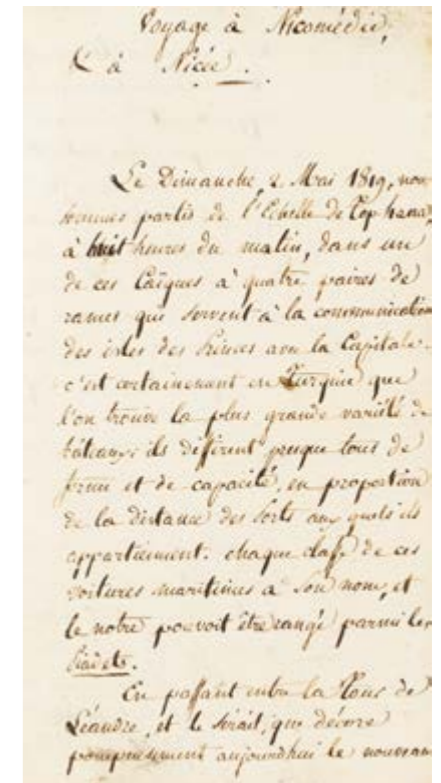 Voyage à Nicomédie,
& à Nicée.
Le Dimanche, 2 Mai 1819, nous
sommes partis de l'Echelle de Top hana,
à huit heures du matin, dans un
de ces Caïques à quatre paires de
rames qui servent à la communication
des isles des Princes avec la Capitale.
c'est certainement en Turquie que
l'on trouve la plus grande variété de
bâteaux; ils diffèrent presque tous de
forme et de capacité, en proportion
de la distance des Ports aux quels ils
appartiennent. chaque classe de ces
voitures maritimes a son nom, et
le notre pouvoit être rangé parmi les
En passant entre la Tour de
Léandre, et le Sérail, que décore
pompeusement aujourdhui le nouveau